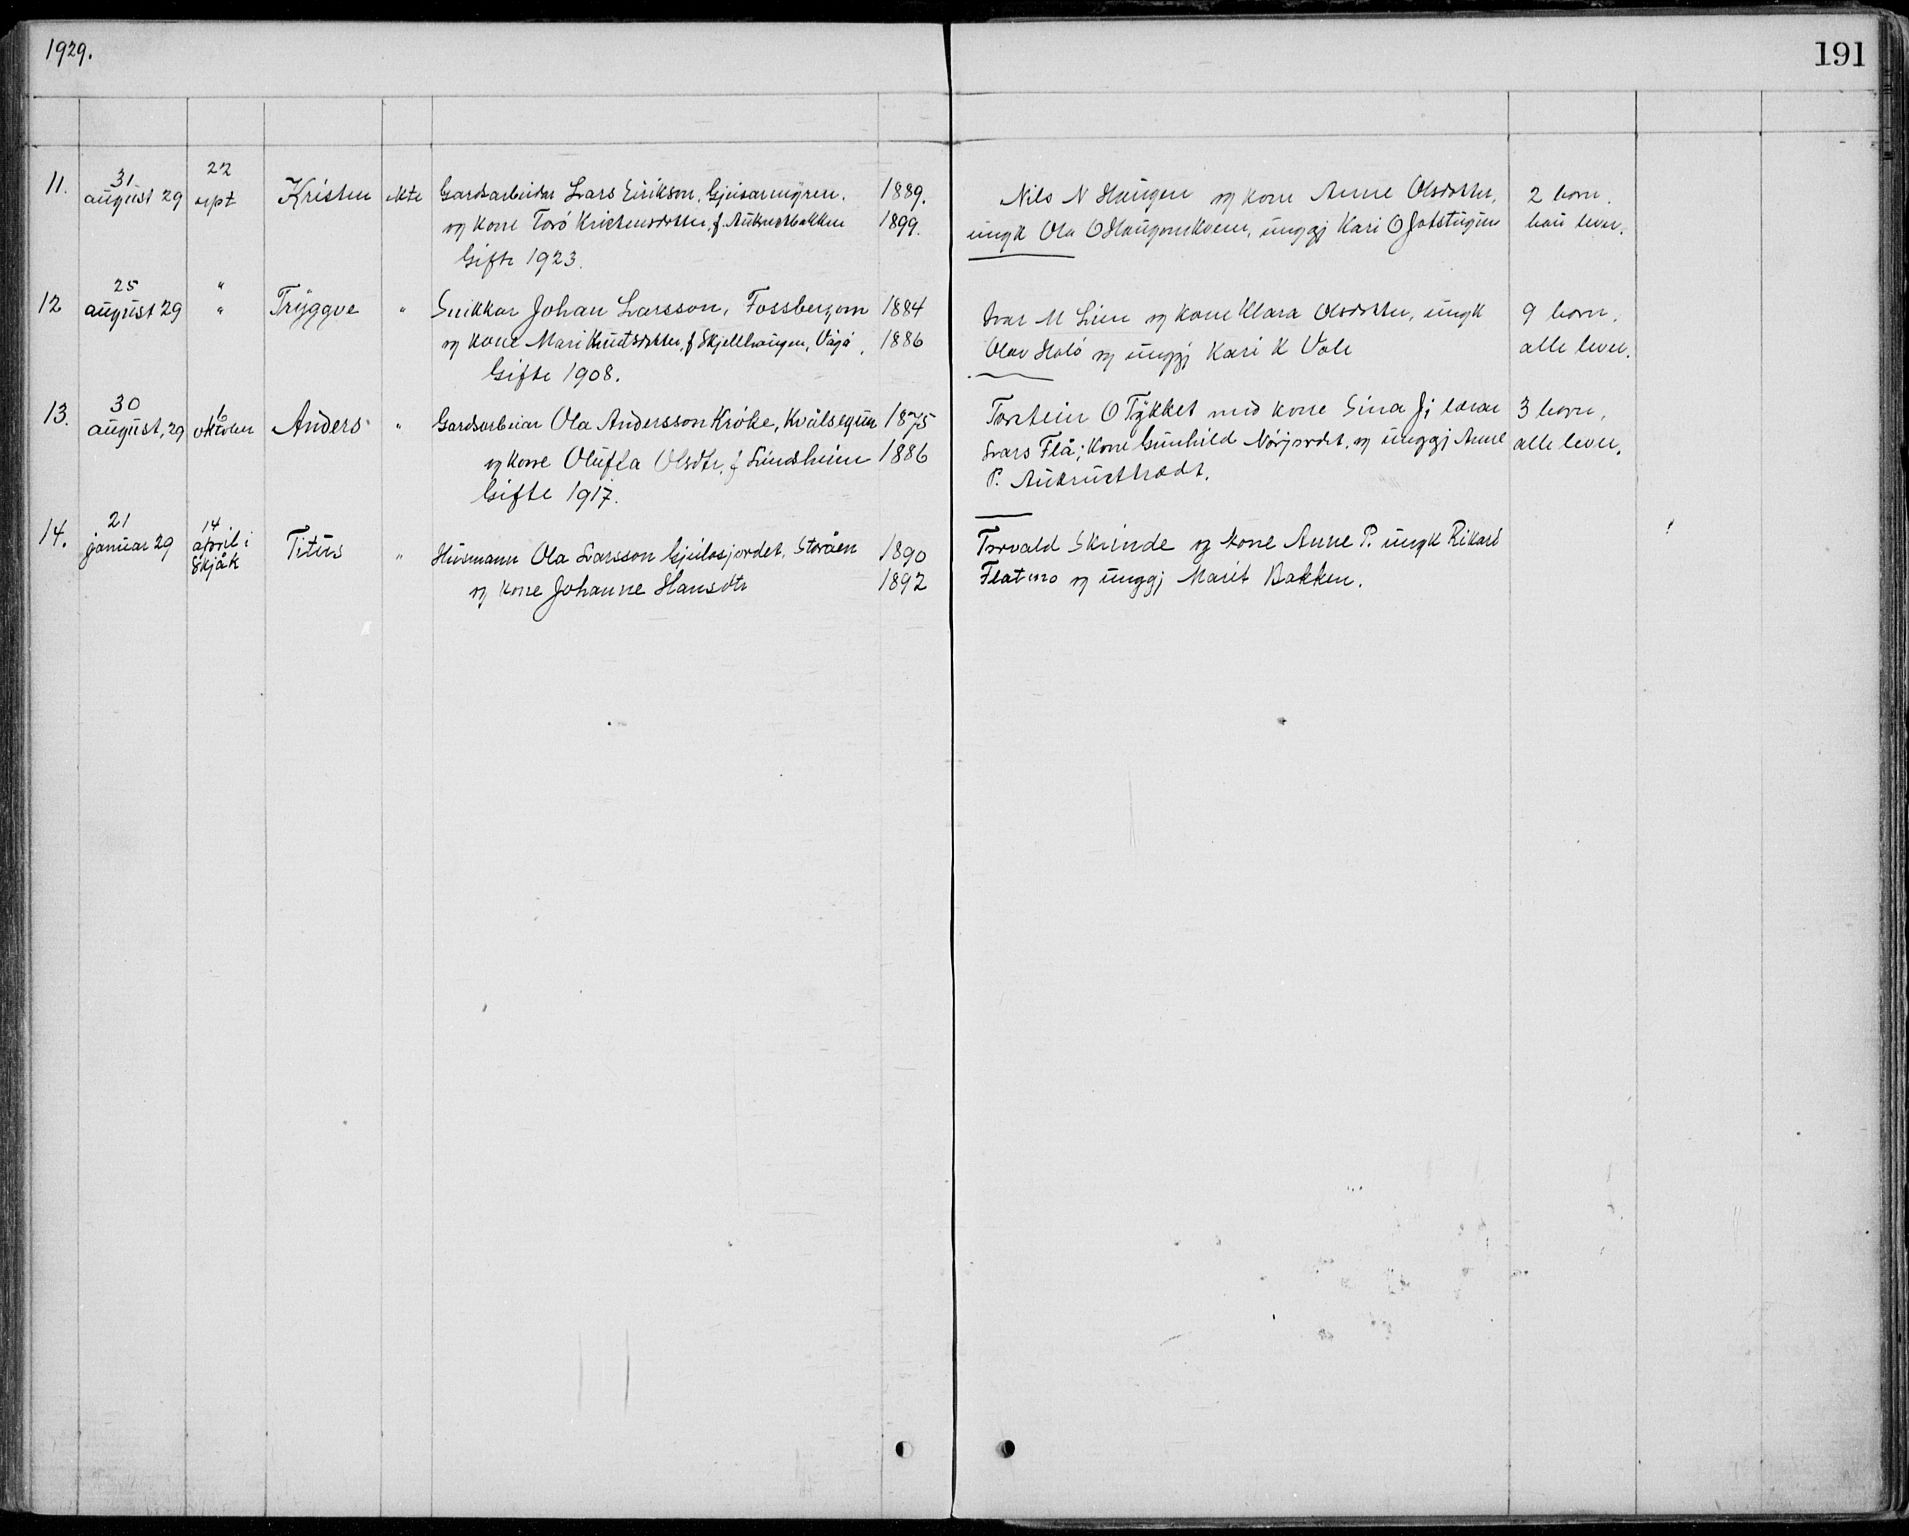 1929.
191
11. 31 august 29 22 sept Kristen ekte Gardsarbeidar Lars Eirikson, Gjeisarmyren. 1889. Nils N Haugen og kone Anne Olsdotter, 2 born.
og kone Toró Kristensdotter, f. Aukrustbakken 1899. ungk Ola O Haugomskvem, unggj Kari O Jotstugun bau lever.
Gifte 1923.
12 25 august 29 " " Tryggve " Snikkar Johan Larsson, Fossbergom 1884 Ivar M Lien og kone Klara Olsdotter, ungk 9 born.
og kone Mari Knutsdotter, f Skjellhaugen, Vågå, 1886 Olav Holö og unggj Kari K Vole alle lever.
Gifte 1908.
13. 30 august, 29 6 oktober Anders " Gardsarbeiar Ola Andersson Kröke, 1875 Torstein O Tykket med kone Sina J; lærar 3 born,
og kone Olufla Olsdtr, f Sundheim 1886 Lars Flå; kone Gunhild Nörjordet, og unggj Anne alle lever.
Gifte 1917. P. Aukrusttrædt.
14. 21 januar 29 14 april i Skjåk Titus " Husmann Ola Larsson Gjeilosjordet, Storåen 1890 Torvald Skrinde og kone Anne P. ungk Rikard
og kone Johanne Hansdtr 1892 Flatmo og unggj Marit Bakken.